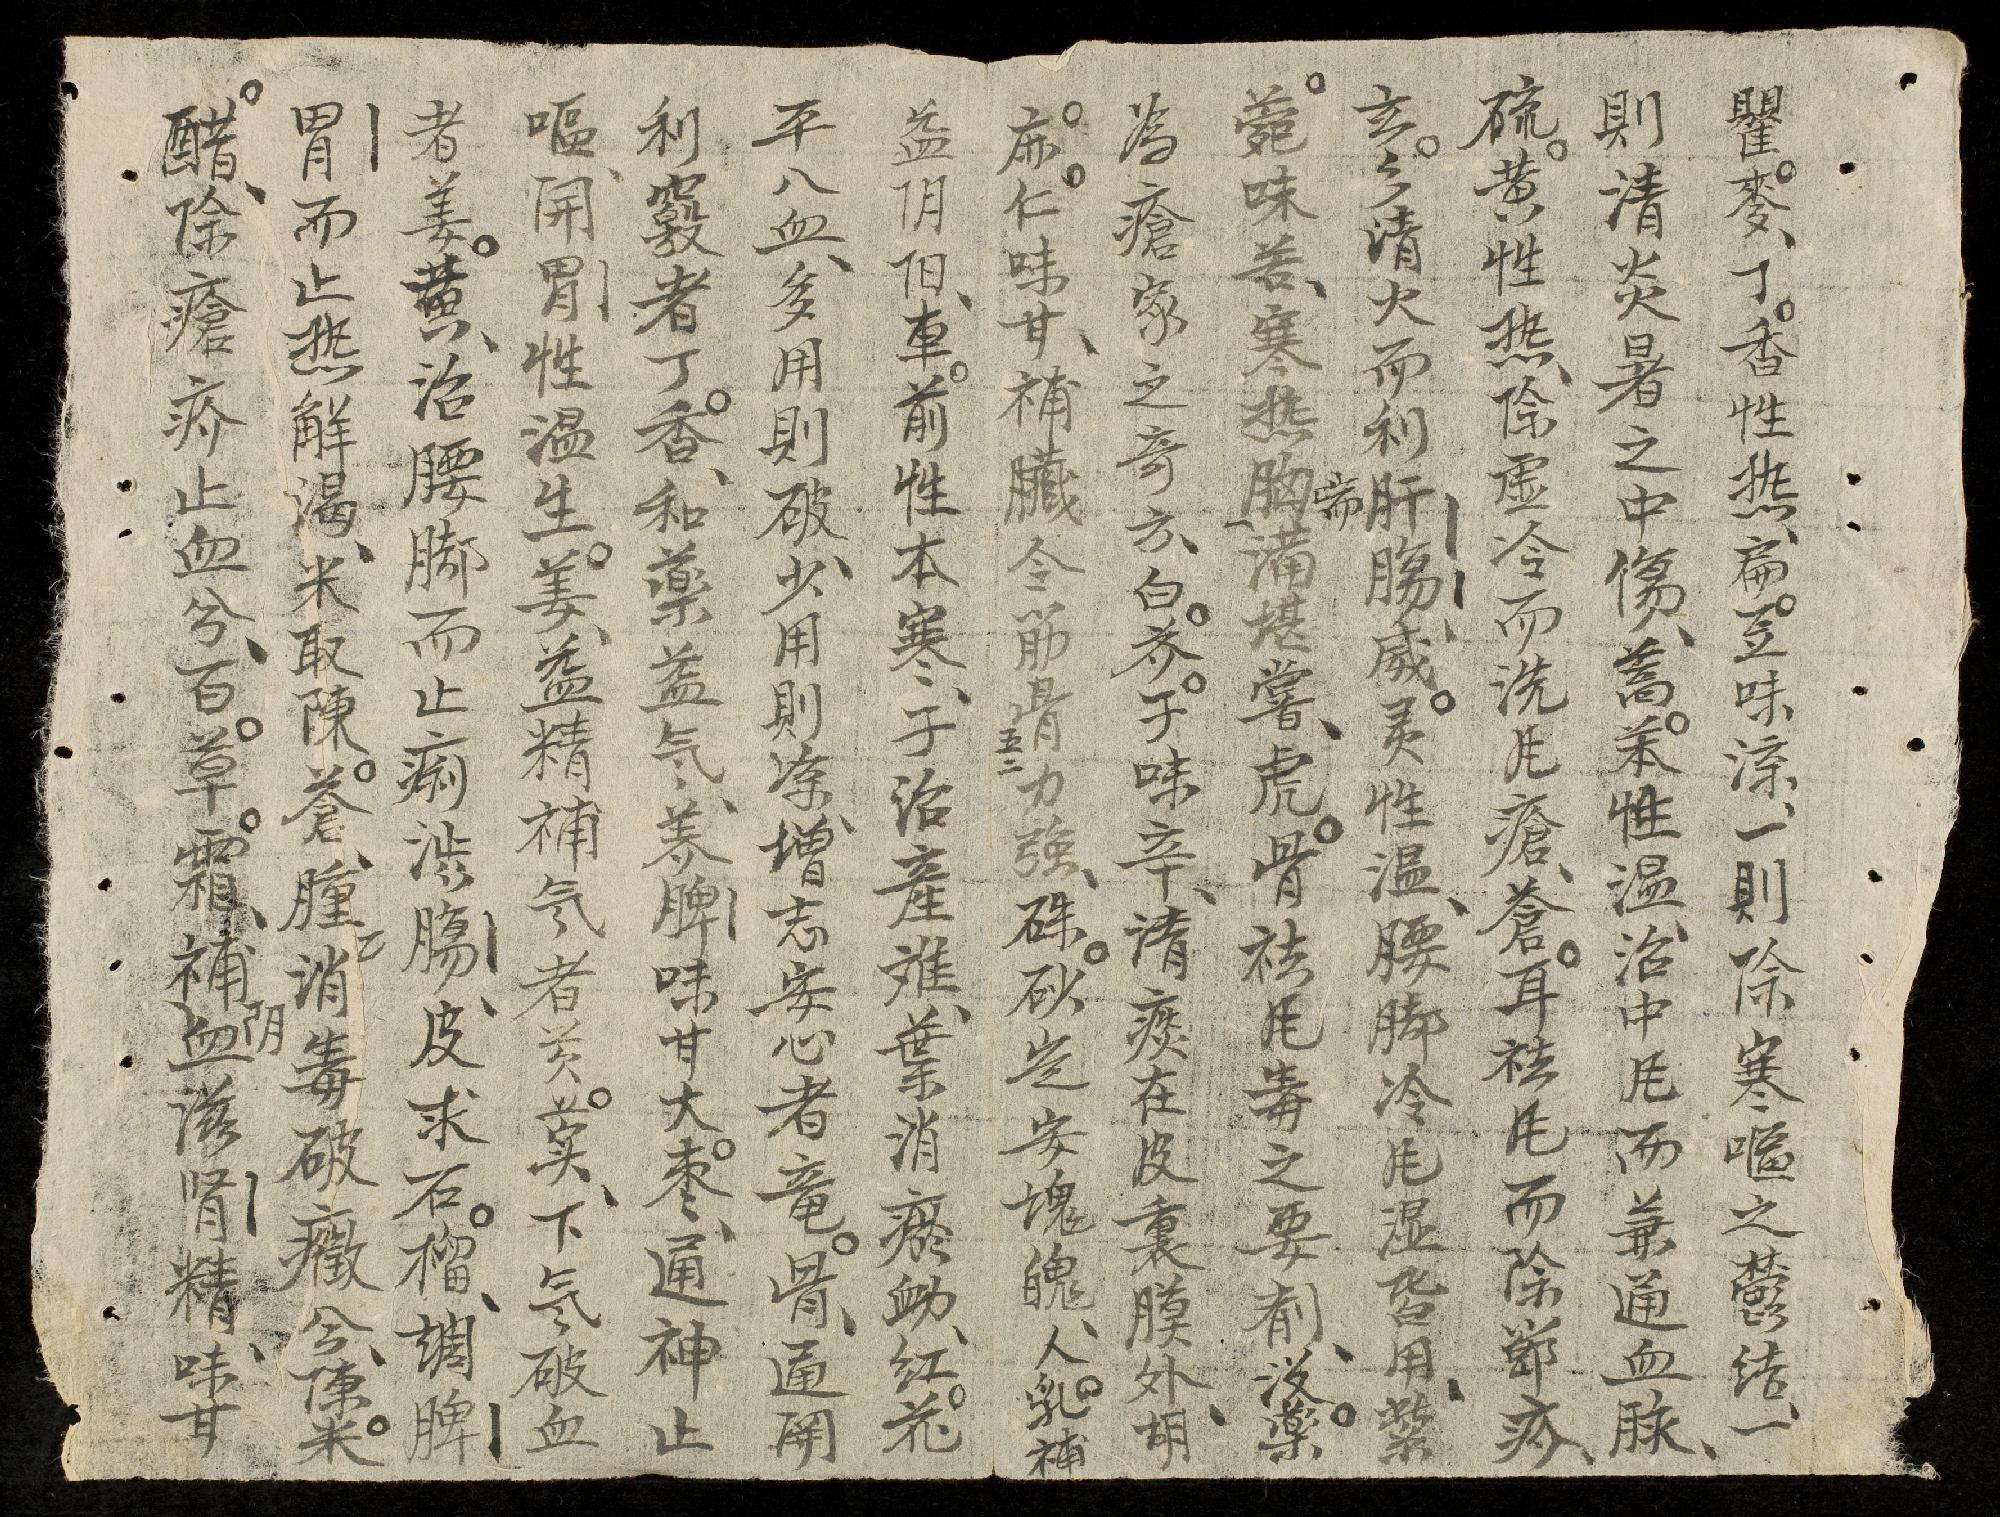 瞿麥、丁香性热、扁豆味凉、一則除寒嘔之鬱结、一
則清炎暑之中傷、藁苯性温、治中凬而兼通血脉、
硫黄性热、除虚冷而洗凬瘡、蒼耳祛凬而除癤疥、
玄多清火而利肝腸、威灵性温、腰脚冷凬湿昏用、紫
菀味苦、寒热胸満喘堪嘗、虎骨祛凬毒之要剤、没藥
為瘡家之奇方、白芥子味辛、清痰在皮裏膜外、胡
麻仁味甘、補臟令筋骨力強、硃砂定安塊魄、人乳補
益阴阳、車前性本寒、子治産难、葉消瘀衂、红花
平八血、多用則破、少用則凉、增志安心者竜骨、通開
利竅者丁香、和藥益气、养脾味甘大枣、通神止
嘔、開胃性温生姜、益精補气者芡實、下气破血
者姜黄、治腰脚而止痢澁腸、皮求石榴、調脾
胃而止热解渴、米取陳蒼、腫消毒破癥兮、陳米
醋、除瘡疥止血兮、百草霜、補阴血滋肾精、味甘